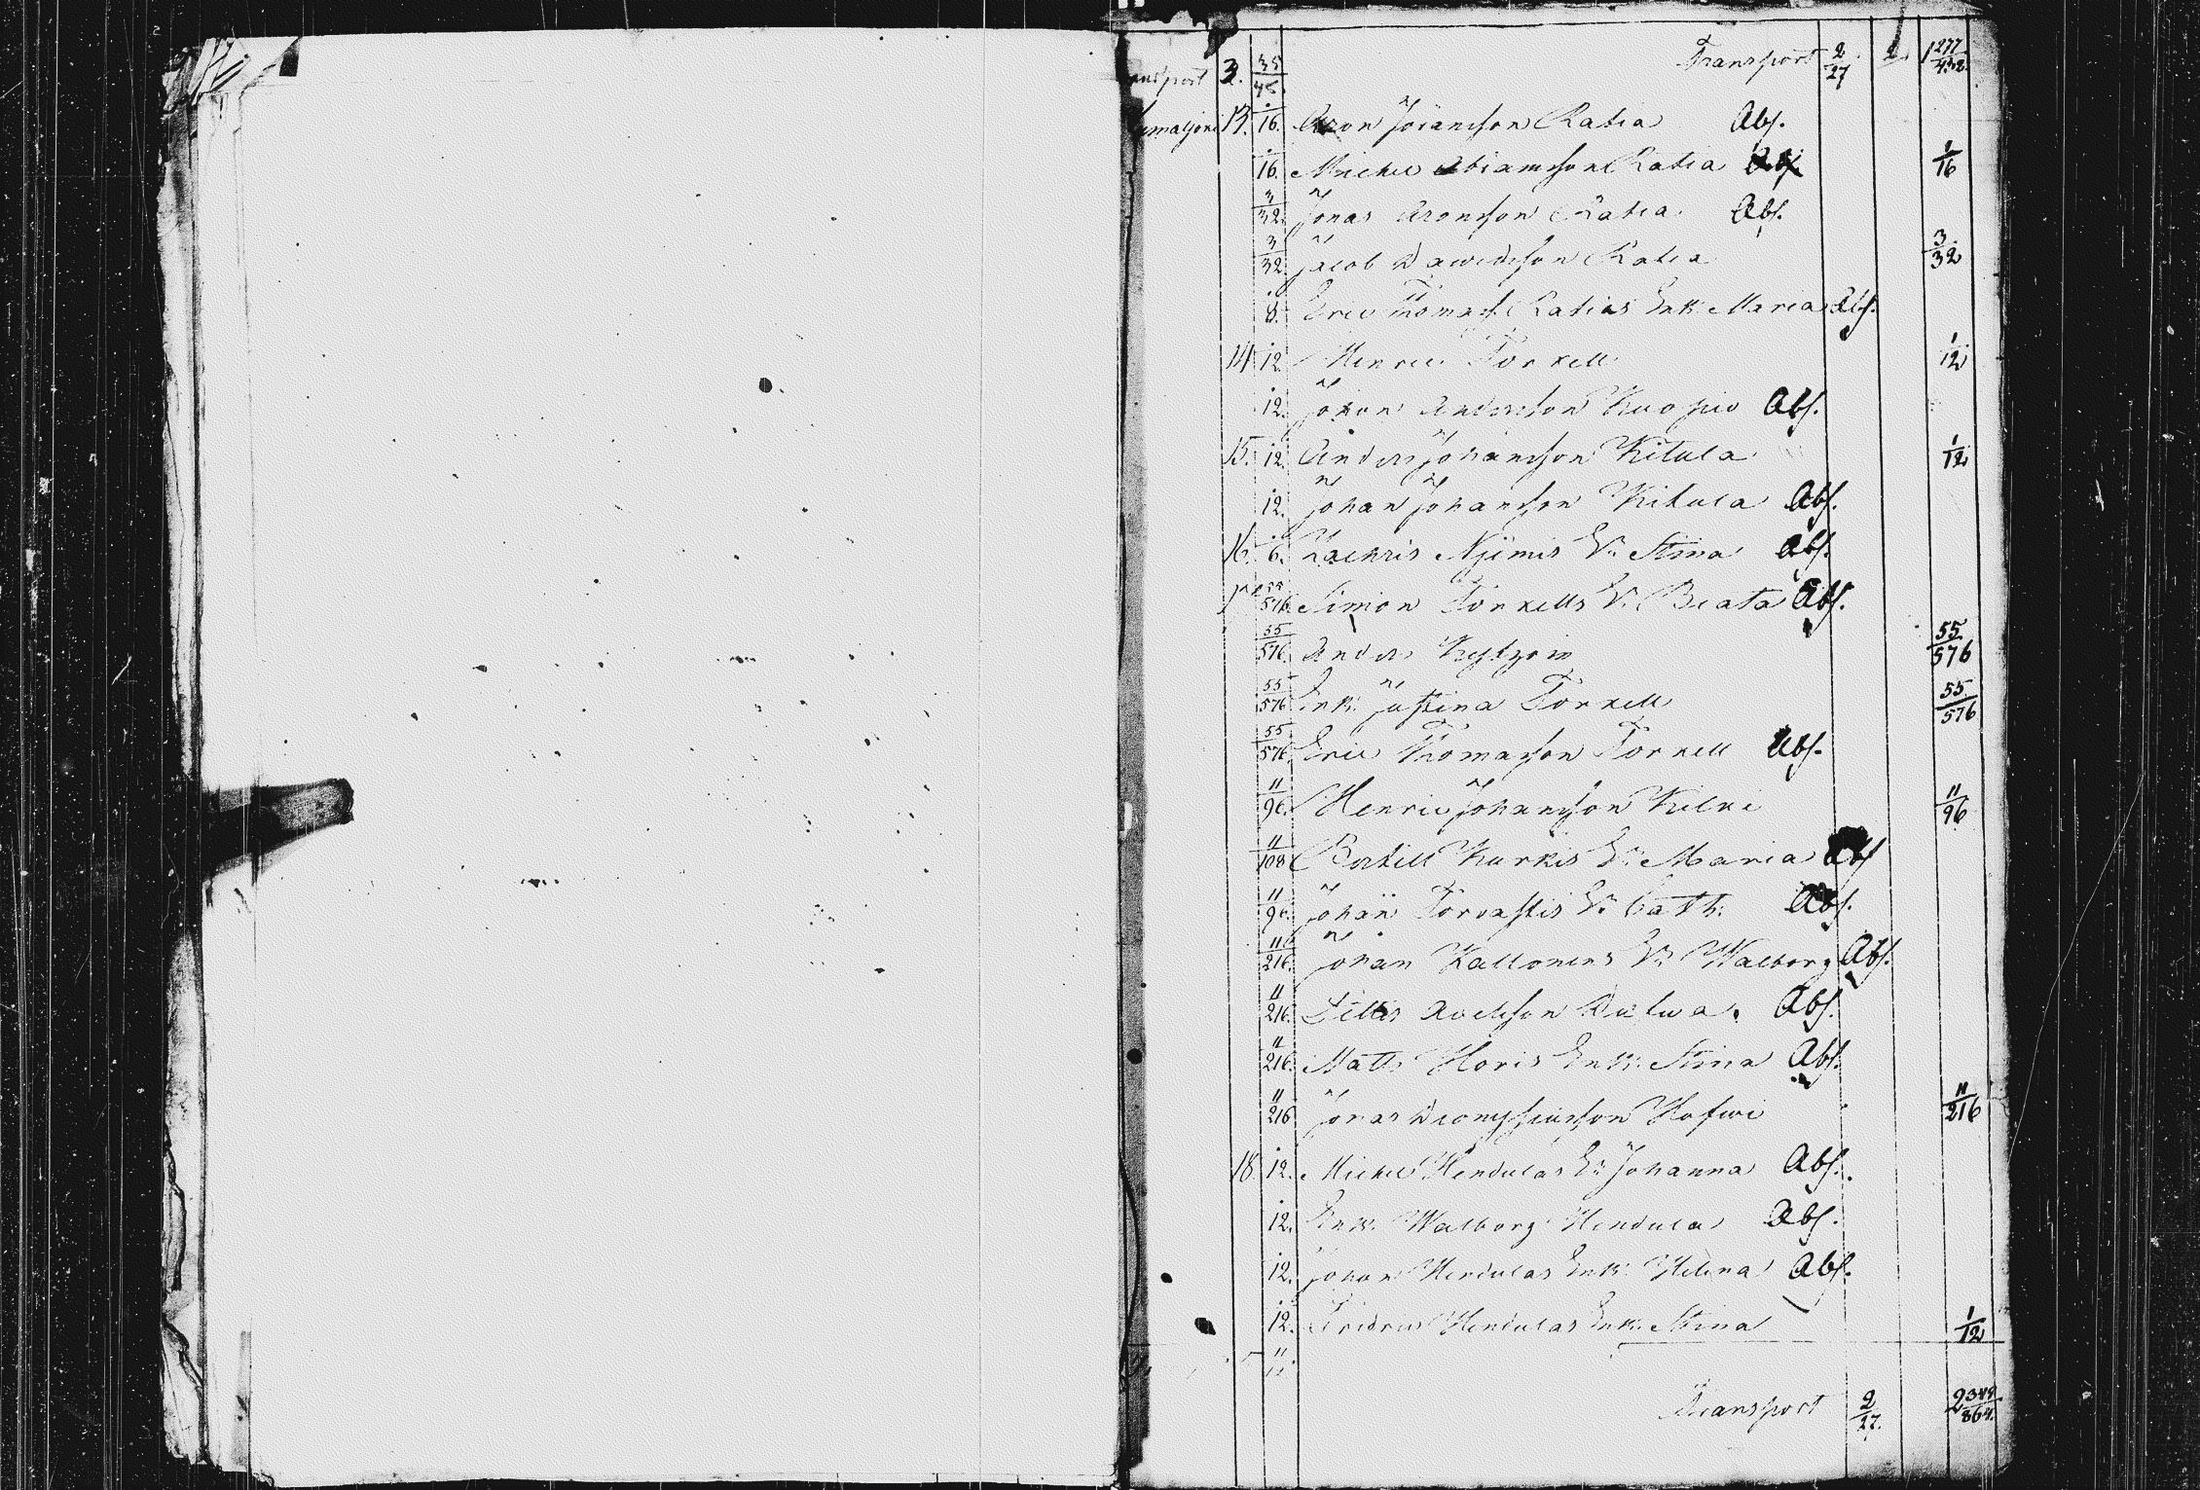 Transport 2/27 1 277/432
ansport 3. 35/48
13. 1/16. Aron Johansson Ratia Abs.
1/16. Michel Abramsson Ratia Abs 1/16
3/32 Jonas Aronsson Ratia Abs.
3/32 Jacob Dawidsson Ratia 3/32
1/8. Eric Thomass. Ratias Enk: Maria Abs.
14 1/12. Henric Torkell 1/12
1/12. Johan Andersson Kuopio Abs.
15. 1/12. Anders Johansson Kitula 1/12
1/12. Johan Johansson Kitula Abs.
16. 1/6. Zachris Njimis E: Stina Abs.
55/576 Simon Torkells E: Beata Abs.
55/576. Anders 55/576
55/576 Enk: Justina Torkell 55/576
55/576 Eric Thomasson Torkell Abs.
11/96. Henric Johansson 11/96
11/108 Bertill Kurkis E: Maria Abs
11/96. Johan Torvastis E: Cath: Abs.
11/216. Johan Kallonens E: Walborg Abs.
11/216. Abs.
11/216. Matts Horis Enk: Stina Abs.
11/216 Jonas Dionysiusson 11/216
18. 1/12. Michel Hendulas E: Johanna Abs.
1/12. Enk: Walborg Hendula Abs.
1/12. Johan Hendulas Enk: Helena Abs.
1/12. Fridric Hendulas Enk: Stina 1/12
Transport 2/27. 2 349/864.